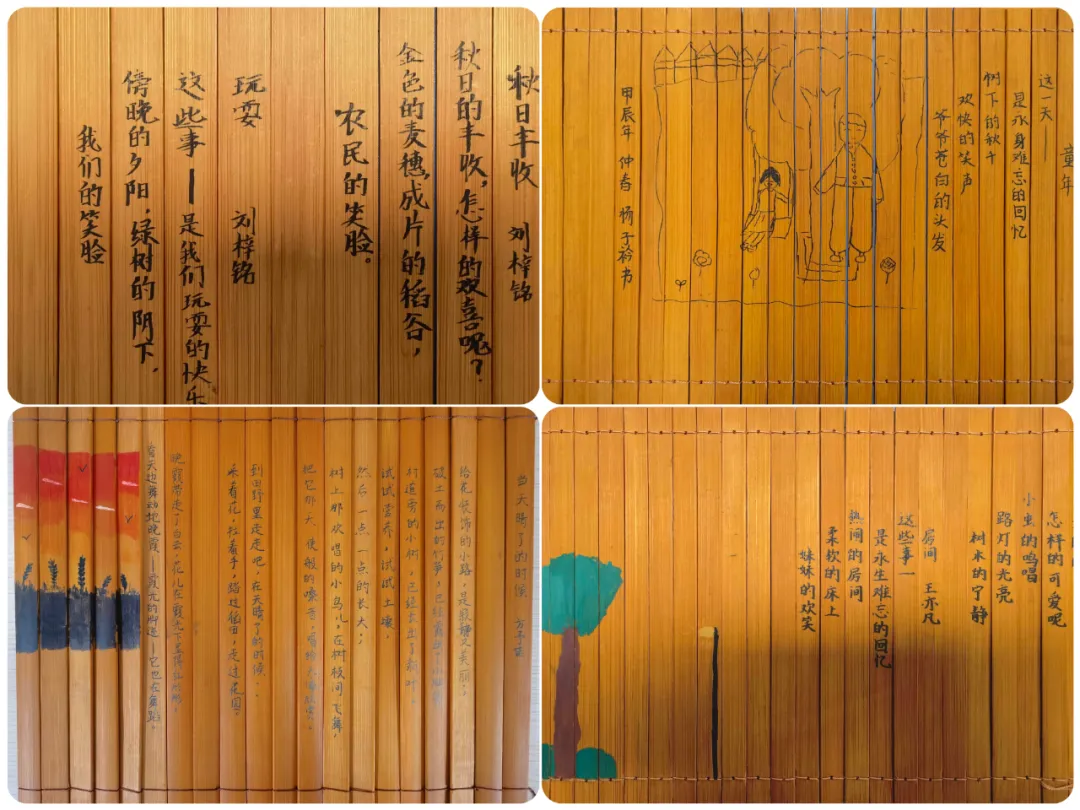 秋日丰收 刘梓铭
秋日的丰收,怎样的欢喜呢?
金色的麦穗,成片的稻谷,
农民的笑脸。
玩耍 刘梓铭
这些事——是我们玩耍的快乐
傍晚的夕阳,绿树的阴下,
我们的笑脸
童年
这一天——
是永身难忘的回忆
树下的秋千
欢快的笑声
爷爷苍白的头发
甲辰年 仲春 杨子衿书
当天晴了的时候 方子
给花装饰的小路,是那么美丽;
破土而出的竹笋,已经
村道旁的小树,已经长出了新叶,
试试营养,试试土壤,
然后一点一点的长大;
树上那欢唱的小鸟儿,在树枝间飞舞,
把它那天使般的嗓子,
到田野里走走吧,在天晴了的时候..
采着花,拉着手,踏过稻田,走过花园。
晚霞带走了白云,花儿在霞光下
看天边舞动的晚霞——最光的脚迹——它也在舞蹈。
怎样的可爱呢
小虫的鸣唱
路灯的光亮
树木的宁静
房间 王亦凡
这些事一
是永生难忘的回忆
热闹的房间
柔软的床上
妹妹的欢笑